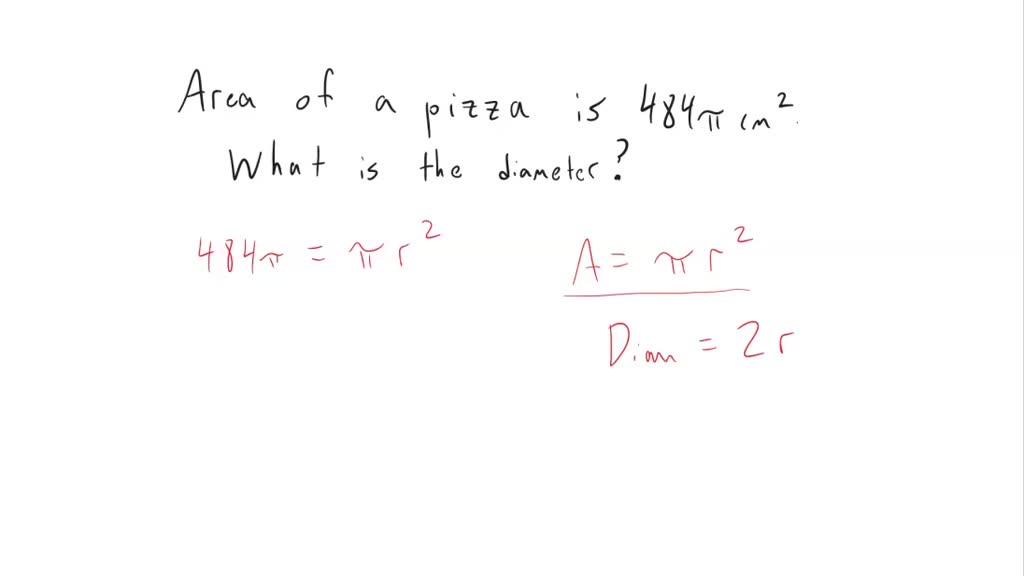 Area of a pizza is 484π cm².
What is the diameter?
484π = πr²
A = πr²
Diam = 2r